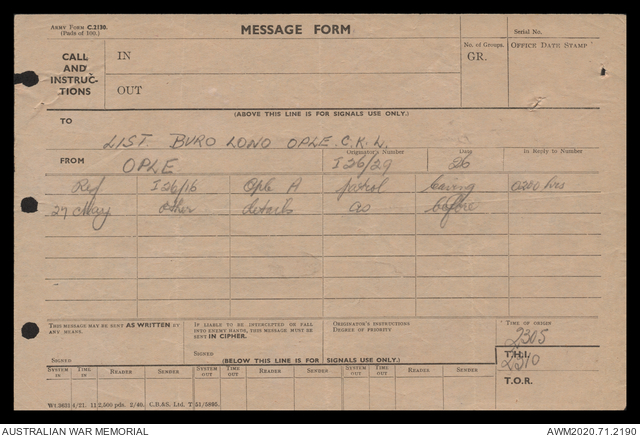 ARMY FORM C.2130.
(Pads of 100.)
MESSAGE FORM
Serial No.
CALL AND INSTRUC- TIONS
IN
OUT
No. of Groups.
GR.
OFFICE DATE STAMP
(ABOVE THIS LINE IS FOR SIGNALS USE ONLY.)
TO
LIST BURO LONO OPLE C.K.L.
FROM
OPLE
Originator's Number
I26/29
Date
26
In Reply to Number
Ref I26/16 Ople A patrol leaving 0200 hrs
27 May other details as before
THIS MESSAGE MAY BE SENT AS WRITTEN BY ANY MEANS.
SIGNED
IF LIABLE TO BE INTERCEPTED OR FALL INTO ENEMY HANDS, THIS MESSAGE MUST BE SENT IN CIPHER.
SIGNED
ORIGINATOR'S INSTRUCTIONS
DEGREE OF PRIORITY
TIME OF ORIGIN
2305
T.H.I.
2310
T.O.R.
(BELOW THIS LINE IS FOR SIGNALS USE ONLY.)
SYSTEM IN TIME IN READER SENDER SYSTEM OUT TIME OUT READER SENDER SYSTEM OUT TIME OUT READER SENDER
C.B.&S. Ltd. T 51/5885.
AUSTRALIAN WAR MEMORIAL
AWM2020.71.2190